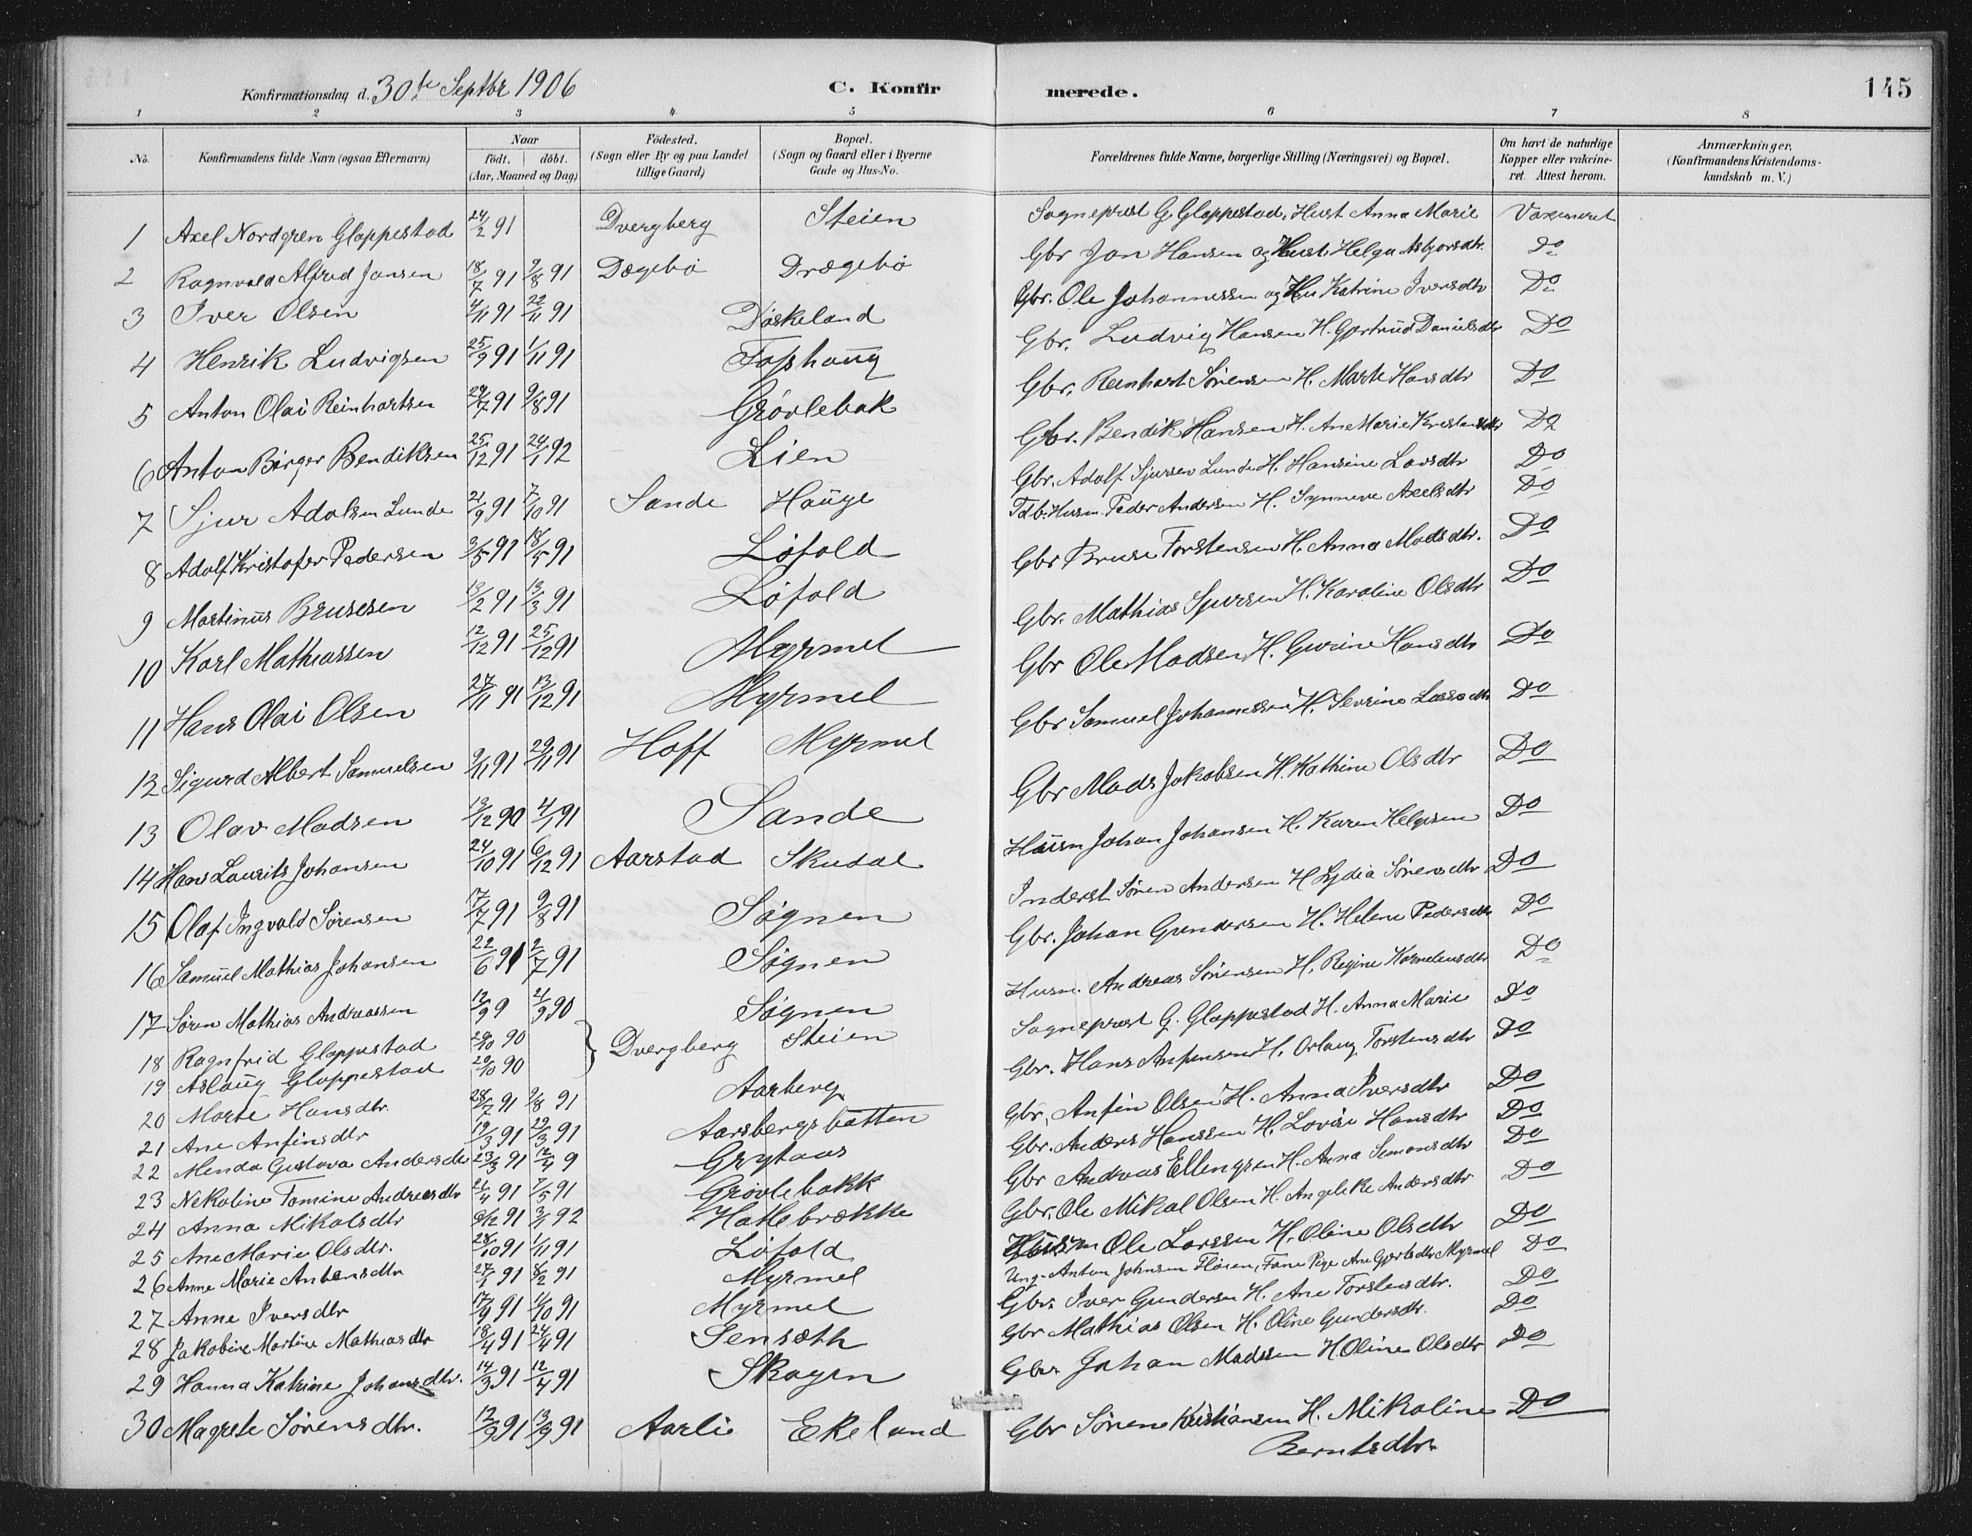 Konfirmationsdag d. 30te Septbr 1906 C. Konfirmerede. 145
1 2 3 4 5 6 7 8
No. Konfirmandens fulde Navn (ogsaa Efternavn) Naar født. døbt. (Aar, Maaned og Dag) Fødested. (Sogn eller By og paa Landet tillige Gaard) Bopæl. (Sogn og Gaard eller i Byerne Gade og Hus-No. Forældrenes fulde Navne, borgerlige Stilling (Næringsvei) og Bopæl. Om havt de naturlige Kopper eller vakcineret. Attest herom. Anmærkninger. (Konfirmandens Kristendomskundskab m. V.)
1 Axel Nordgren Gloppestad 24/2 91 Dvergberg Steien Sogneprest G. Gloppestad, Hust Anna Marie Vaxineret
2 Ragnvald Alfred Jansen 18/7 91 9/8 91 Dægebø Drægebø Gbr Jon Hansen og Hust. Helga Asbjørsdtr. Do
3 Iver Olsen 4/11 91 22/11 91 Døskeland Gbr. Ole Johannessen og Hu Katrine Iversdtr Do
4 Henrik Ludvigsen 25/9 91 1/11 91 Fosshaug Gbr. Ludvig Hansen H. Gjertrud Danielsdtr Do
5 Anton Olai Reinhartsen 29/7 91 9/8 91 Grøvlebak Gbr. Reinhart Sørensen H. Marte Hansdtr Do
6 Anton Birger Bendiksen 25/12 91 24/1 92 Lien Gbr. Bendik Hansen H. Ane Marie Do
7 Sjur Adolsen Lunde 21/9 91 7/10 91 Sande Hauge Gbr. Adolf Sjursen Lunde H. Hansine Larsdtr Do
8 Adolf Kristofer Pedersen 3/5 91 18/5 91 Løfold Husm. Peder Andersen H. Synneve Axelsdtr Do
9 Martinus Brusesen 13/2 91 13/3 91 Løfold Gbr Bruse Torstensen H. Anna Madsdtr. Do
10 Karl Mathiassen 12/12 91 25/12 91 Myrmel Gbr. Mathias Sjursen H. Karoline Olsdtr Do
11 Hans Olai Olsen 27/11 91 13/12 91 Myrmel Gbr Ole Madsen H. Gurine Hansdtr Do
12 Sigurd Albert Samuelsen 9/11 91 29/11 91 Hoff Myrmel Gbr Samuel Johannessen H. Severine Lassedtr Do
13 Olav Madsen 19/12 90 4/1 91 Sande Gbr Mads Jakobsen H. Kathine Olsdtr Do
14 Hans Laurits Johansen 24/10 91 6/12 91 Aarstad Skudal Husm Johan Johansen H. Karen Helgesen Do
15 Olaf Ingvald Sørensen 17/7 91 9/8 91 Søgnen Inderst Søren Andersen H Lydia Sørensdtr Do
16 Samuel Mathias Johansen 22/6 91 2/7 91 Søgnen Gbr. Johan Gundersen H. Helene Pedersdtr Do
17 Søren Mathias Andreassen 12/9 9 21/9 90 Søgnen Husm. Andreas Sørensen H. Regine Korneliusdtr Do
18 Ragnfrid Gloppestad 20/10 90 Dvergberg Steien Sogneprest G. Gloppestad H. Anna Marie Do
19 Aslaug Gloppestad 20/10 90
20 Marte Hansdtr. 28/7 91 9/8 91 Aarberg Gbr. Hans Anfinsen H. Orlaug Torstensdtr Do
21 Ane Anfinsdtr 19/3 91 29/3 91 Aarsbergsbotten Gbr, Anfin Olsen H. Anna Iversdtr Do
22 Menda Gustava Andersdtr 23/3 91 12/4 9 Grytaas Gbr. Anders Hanssen H. Lovise Hansdtr Do
23 Nikoline Tomine Andreasdtr 21/4 91 7/5 91 Grøvlebakk Gbr Andreas Ellengsen H. Anna Simonsdtr Do
24 Anna Mikalsdtr 6/12 91 3/1 92 Hatlebrække Gbr. Ole Mikal Olsen H. Angelike Andersdtr Do
25 Ane Marie Olsdtr. 28/10 91 1/11 91 Løfold Husm Ole Larssen H. Oline Olsdtr Do
26 Anne Marie Antonsdtr 27/1 91 8/2 91 Myrmel Ung. Anton Johnsen Fløien, Tone Pige Ane Gjertsdtr Myrmel Do
27 Anne Iversdtr 17/9 91 11/10 91 Myrmel Gbr. Iver Gundersen H. Ane Torstensdtr. Do
28 Jakobine Martine Mathiasdtr 18/4 91 24/4 91 Sensæth Gbr Mathias Olsen H. Oline Gundersdtr. Do
29 Hanna Katrine Johansdtr. 14/3 91 12/4 91 Skogen Gbr Johan Madssen H Oline Olsdtr Do
30 Magrete Sørensdtr. 12/9 91 13/9 91 Aarlie Ekeland Gbr Søren Kristiansen H. Mikoline Do
Berntsdtr